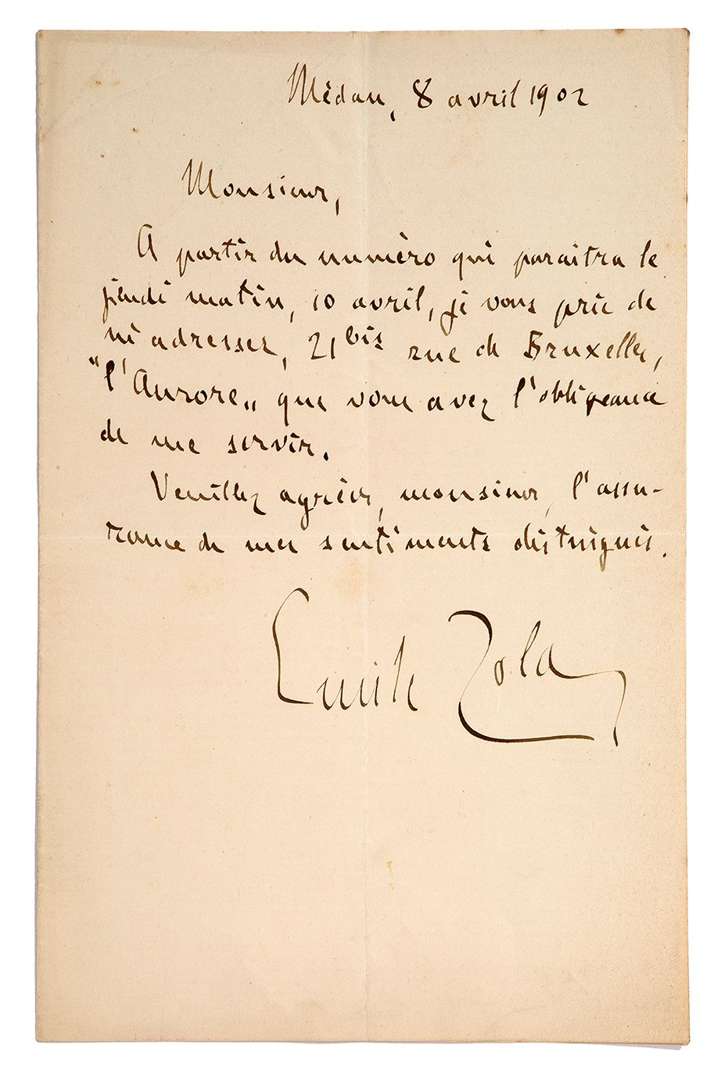 Médan, 8 avril 1902
Monsieur,
A partir du numéro qui paraitra le
jeudi matin, 10 avril, je vous prie de
m'adresser, 21bis rue de Bruxelles,
"l'Aurore„ que vous avez l'obligeance
de me servir.
Veuillez agréer, monsieur, l'assu-
rance de mes sentiments distingués.
Emile Zola